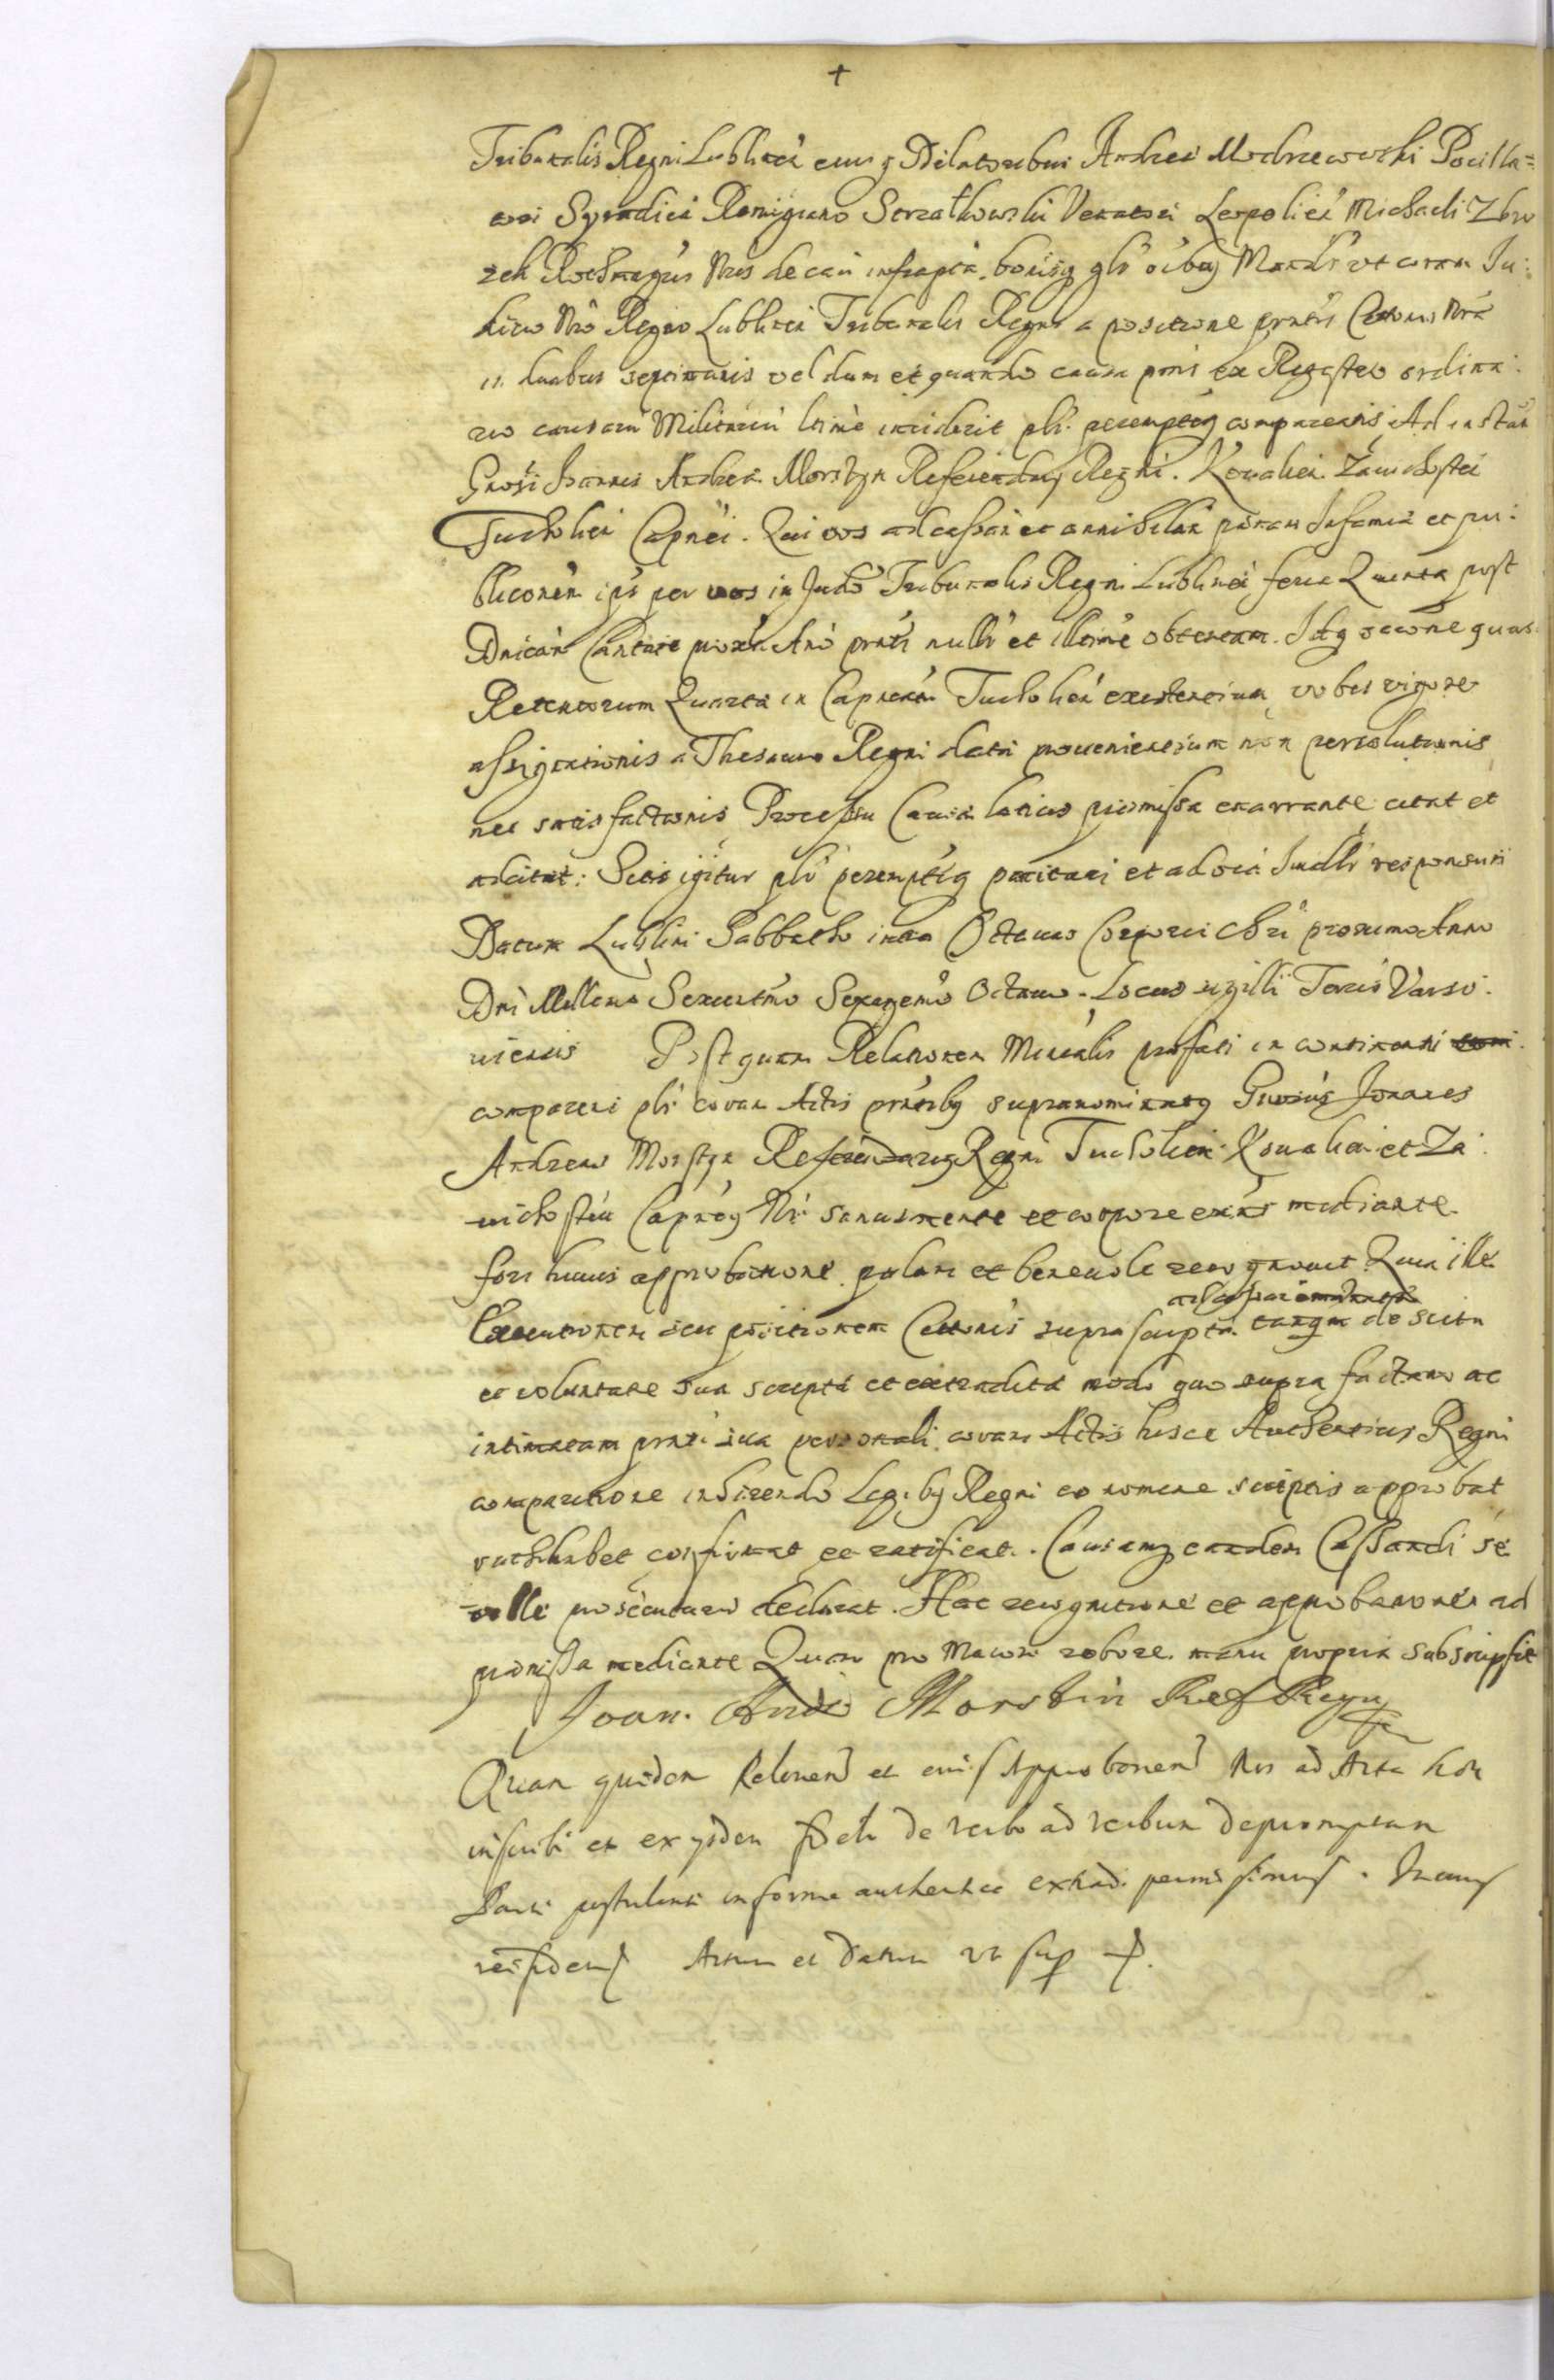 +
Tribunalis Regni Lublinen eiusq Delatoribus Andreæ Modrzewski Pocilla=
tori Syradien Romigiano Strzałkowski Venatori Leopolien Michaeli Zbro
zek Rothmagris Nris de cau infrapta bonisq glr oibq Mandr ut coram Ju:
dicio Nro Regio Lublinen Tribunalis Regni a positione pntis Cittonis Nræ
in duabus septimanis vel dum et quando causa pnns ex Regestro ordina:
rio causarū Militariū ltime inciderit plr peremptieq compareatis Ad instan
Grosi Joannis Andreæ Morstyn Referendarij Regni Kowalien Zawichosten
Tucholien Capnei. Qui vos ad cassan et annihilan pœnam Infamiæ et pu:
bliconēm ips per vos in Judō Tribunalis Regni Lublinen feria Quinta post
Dnicam Cantate prox Ano pntis nullr et illtime obtentam. Idq occōne quas.
Retentorum Quartæ in Capneatu Tucholien existentium vobis vigore
assignationis a Thesauro Regni datæ provenientium non persolutionis
nec satisfactionis Processu Causæ latius præmissa enarrante citat et
adcitat: Sitis igitur plr peremptieq parituri et ad oia Judlr responsuri
Datum Lublini Sabbatho infra Octauas Corporis Chri proximo Anno
Dni Millmo Sexcentmo Sexagemo Octauo. Locus sigilli Terris Varso:
uiensis Post quam Relationem Mirlis præfati in continenti
comparens plr coram Actis pntibq supranominatq Grosus Joannes
Andreas Morstyn Referendarig Regni Tucholien Kowalien et Za:
wichosten Capneq Nr sanus mente et corpore exns mediante
fori huius approbatione palam et beneuole recognouit Quia ille
Executionem seu positionem Cittonis supra scriptæ de scitu
et voluntate sua scriptæ et extraditæ modo quo supra factam ac
intimatam pnti sua personali coram Actis hisce Authenticis Regni
comparitione inhærendo Legibq Regni eo nomine scriptis approbat
rathabet confirmat et ratificat. Causamq eandem Cassandi se
velle prosecuturū declarat. Hac recognitione et approbatione ad
præmissa mediante Quam pro maiori robore manu propria subscripsit
Joan. Andr Morstin Ref Regni
Quam quidem Relonem et eius Approbonem Nos ad Acta hæc
inscribi et ex ijsdem fideli de verbo ad verbum depromptam
Parti postulanti in forma authentica extradi permisimus.
Actum et Datum ut sup